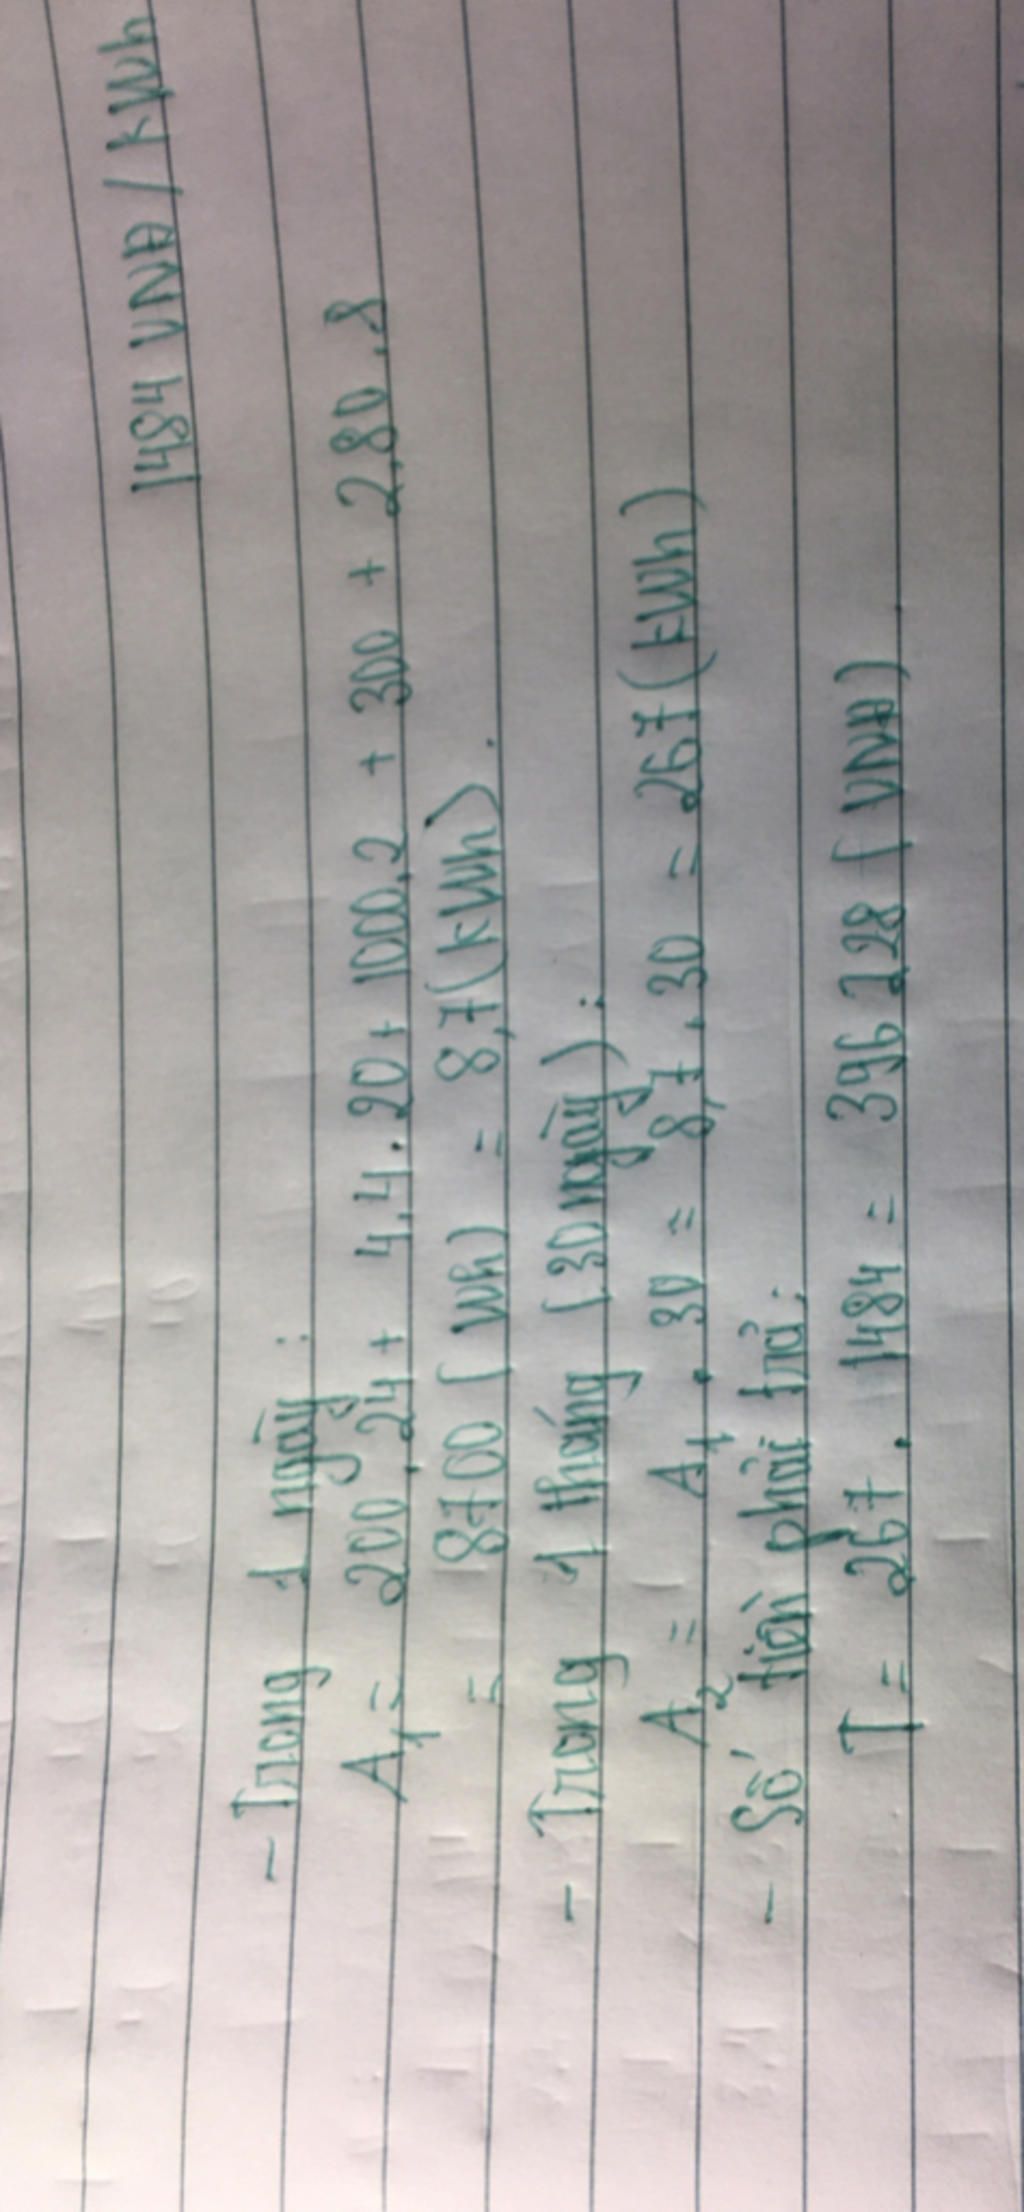 1484 VNĐ / kWh
- Trong 1 ngày :
A₁ = 200.24 + 4.4.20 + 1000.2 + 300 + 2.80.8
= 8700 (Wh) = 8,7 (kWh).
- Trong 1 tháng (30 ngày) :
A₂ = A₁ . 30 = 8,7 . 30 = 267 (kWh)
- Số tiền phải trả :
T = 267 . 1484 = 396 228 (VNĐ)